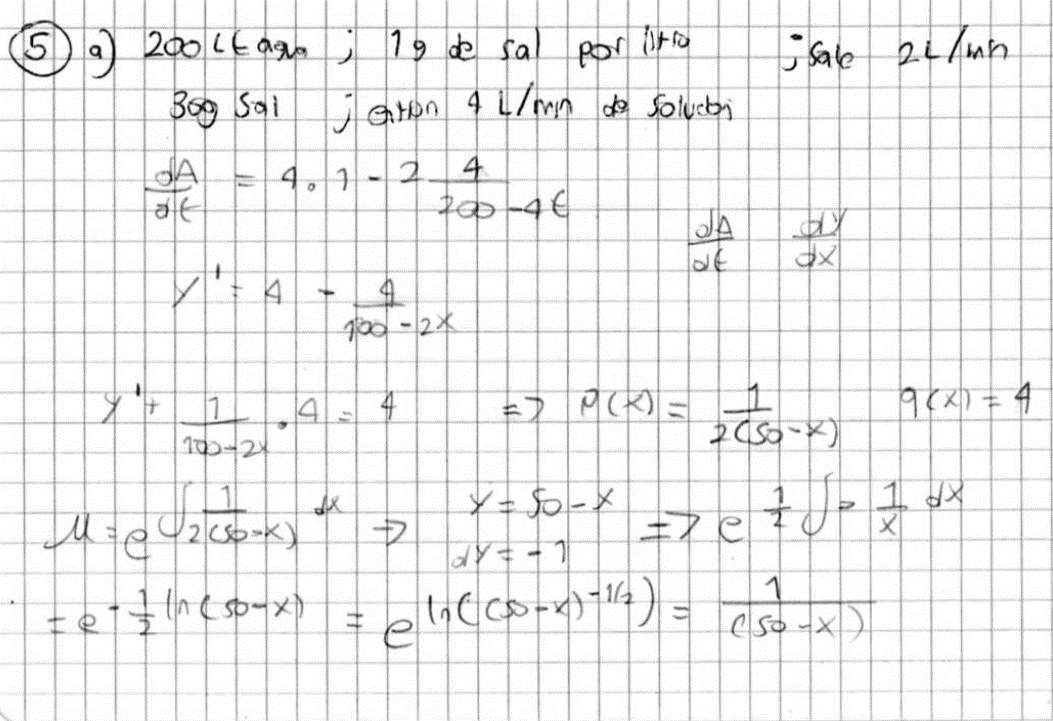 5) a) 200 Lt agua ; 1g de sal por litro ; sale 2L/min
30g Sal ; entran 4 L/min de solución
dA/dt = 4.1 - 2 4/(200-4t)
dA/dt dy/dx
y' = 4 - 4/(100-2x)
y' + 1/(100-2x) . 4 = 4 => P(x) = 1/(2(50-x)) q(x) = 4
μ = e^∫ 1/(2(50-x)) dx => y = 50-x => e^ 1/2 ∫ - 1/x dx
dy = -1
= e^(-1/2 ln(50-x)) = e^(ln((50-x)^(-1/2))) = 1/(50-x)